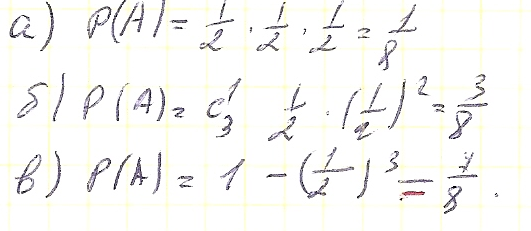 а) P(A) = 1/2 · 1/2 · 1/2 = 1/8
б) P(A) = C₃¹ 1/2 · (1/2)² = 3/8
в) P(A) = 1 - (1/2)³ = 7/8.